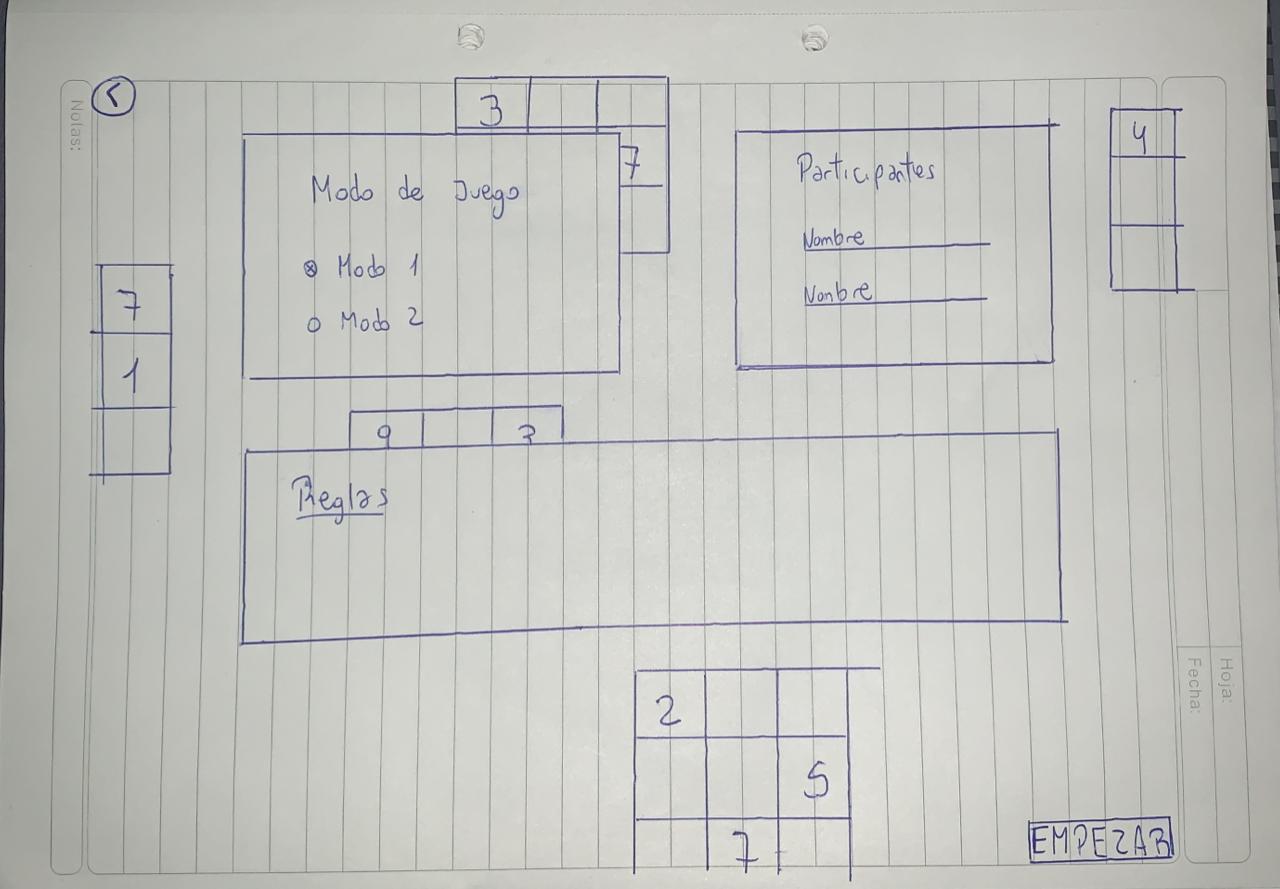 <
3
7
4
Modo de Juego
Modo 1
Modo 2
Participantes
Nombre
Nombre
7
1
9
3
Reglas
2
5
7
EMPEZAR
Notas:
Hoja:
Fecha: